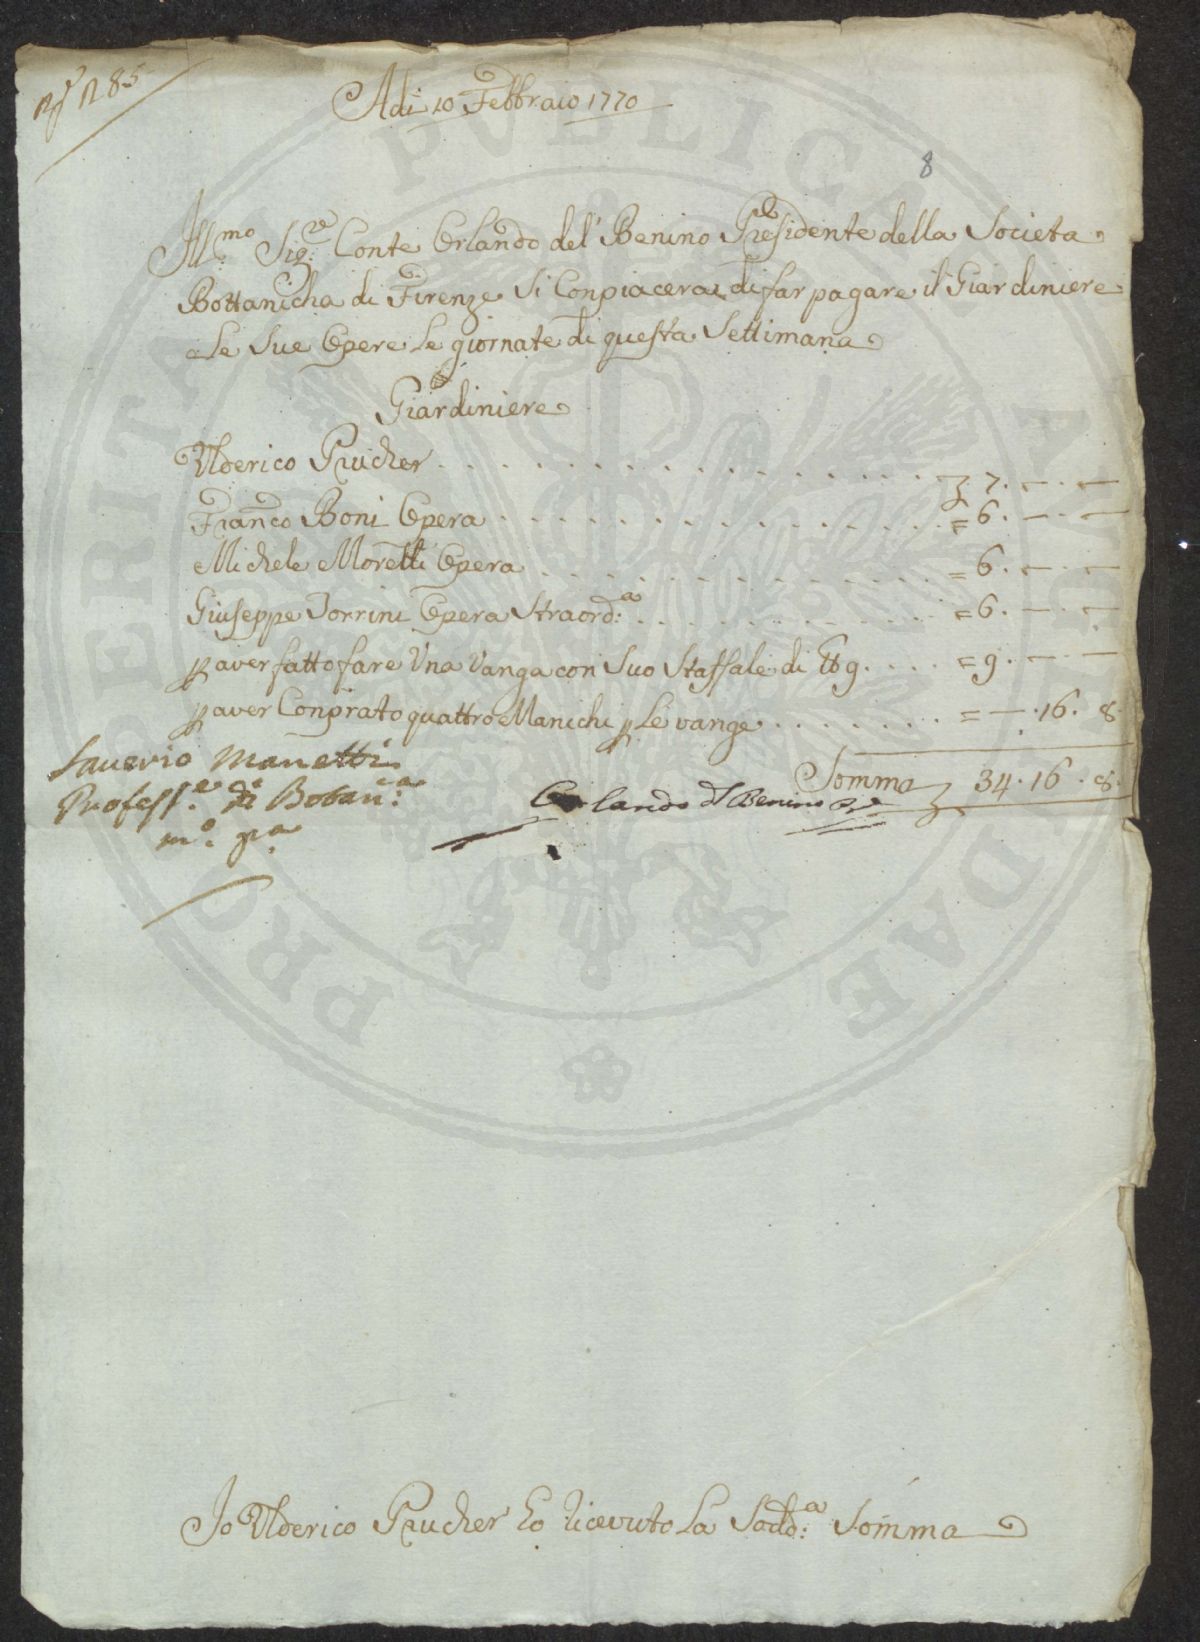 N.° 285
Adi 10 Febbraio 1770
8
Ill.mo Sig.re Conte Orlando del' Benino Presidente della Societa
Bottanicha di Firenze Si Conpiacerai di far pagare il Giardiniere
e le Sue Opere le giornate di questa Settimana
Giardiniere
Ulderico Prucher . . . . . . . . . . . . . . . £ 7. — . —
Franco Boni Opera . . . . . . . . . . . . . . = 6. — . —
Michele Moretti Opera . . . . . . . . . . . . = 6. — . —
Giuseppe Torrini Opera Straord:a . . . . . . . . . = 6. — . —
p aver fatto fare Una Vanga con Suo Staffale di lb 9. . . . . = 9. — . —
p aver Conprato quattro Manichi p Le vange . . . . . . . = — . 16. 8.
Somma £ 34. 16. 8.
Saverio Manetti
Profess.e di Botan:a
m.° p.a
Orlando d Benino Pre
Io Ulderico Prucher Ho ricevuto La Sodd:a Somma
PRO PERITATI PVBLICAE AVGENDAE